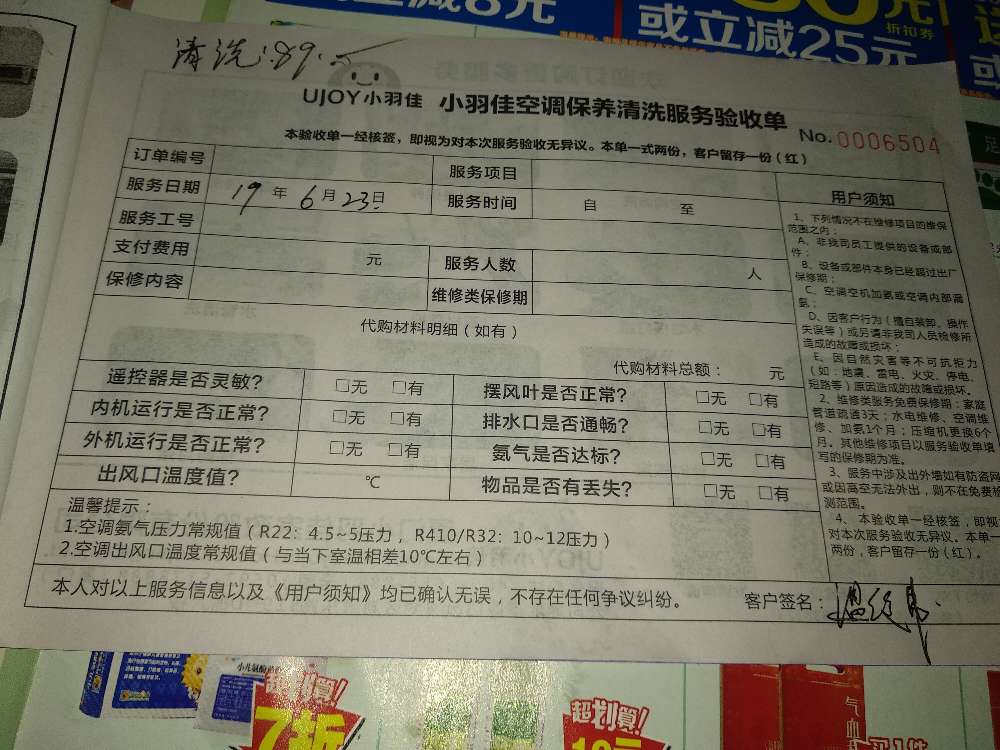 立减8元
元
折扣券
或立减25元
清洗:89.
UJOY小羽佳 小羽佳空调保养清洗服务验收单
No.0006504
本验收单一经核签，即视为对本次服务验收无异议。本单一式两份，客户留存一份（红）
订单编号 服务项目
服务日期 19年6月23日 服务时间 自 至
服务工号
支付费用 元 服务人数 人
保修内容 维修类保修期
代购材料明细（如有）
代购材料总额： 元
遥控器是否灵敏？ □无 □有 摆风叶是否正常？ □无 □有
内机运行是否正常？ □无 □有 排水口是否通畅？ □无 □有
外机运行是否正常？ □无 □有 氨气是否达标？ □无 □有
出风口温度值？ ℃ 物品是否有丢失？ □无 □有
温馨提示：
1.空调氨气压力常规值（R22：4.5~5压力，R410/R32：10~12压力）
2.空调出风口温度常规值（与当下室温相差10℃左右）
本人对以上服务信息以及《用户须知》均已确认无误，不存在任何争议纠纷。 客户签名：
用户须知
1、下列情况不在维修项目的维保
范围之内：
A、非我司员工提供的设备或部
件；
B、设备或部件本身已经超过出厂
保修期；
C、空调空机加氨或空调内部漏
氨；
D、因客户行为（擅自装卸、操作
失误等）或另请非我司人员检修所
造成的故障或损坏；
E、因自然灾害等不可抗拒力
（如：地震、雷电、火灾、停电、
短路等）原因造成的故障或损坏。
2、维修类服务免费保修期：家庭
管道疏通3天；水电维修、空调维
修、加氨1个月；压缩机更换6个
月。其他维修项目以服务验收单填
写的保修期为准。
3、服务中涉及出外墙如有防盗网
或因高空无法外出，则不在免费检
测范围。
4、本验收单一经核签，即视
对本次服务验收无异议。本单一
两份，客户留存一份（红）。
超划算！
7折
超划算！
10元
气血